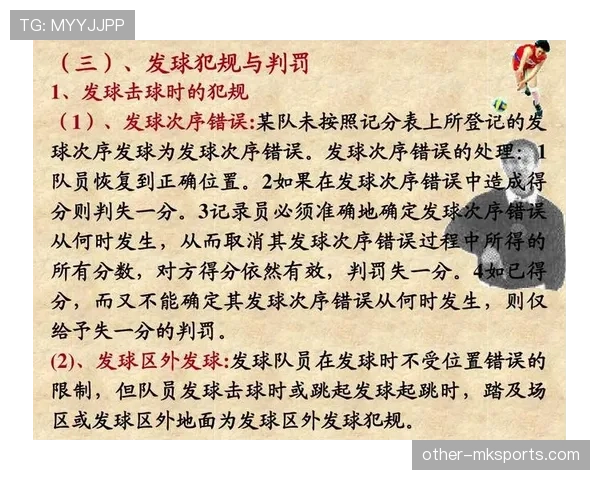 TG: MYYJJPP
（三）、发球犯规与判罚
1、发球击球时的犯规
（1）、发球次序错误:某队未按照记分表上所登记的发
球次序发球为发球次序错误。发球次序错误的处理：1
队员恢复到正确位置。2如果在发球次序错误中造成得
分则判失一分。3记录员必须准确地确定发球次序错误
从何时发生，从而取消其发球次序错误过程中所得的
所有分数，对方得分依然有效，判罚失一分。4如已得
分，而又不能确定其发球次序错误从何时发生，则仅
给予失一分的判罚。
(2)、发球区外发球:发球队员在发球时不受位置错误的
限制，但队员发球击球时或跳起发球起跳时，踏及场
区或发球区外地面为发球区外发球犯规。
other-mksports.com